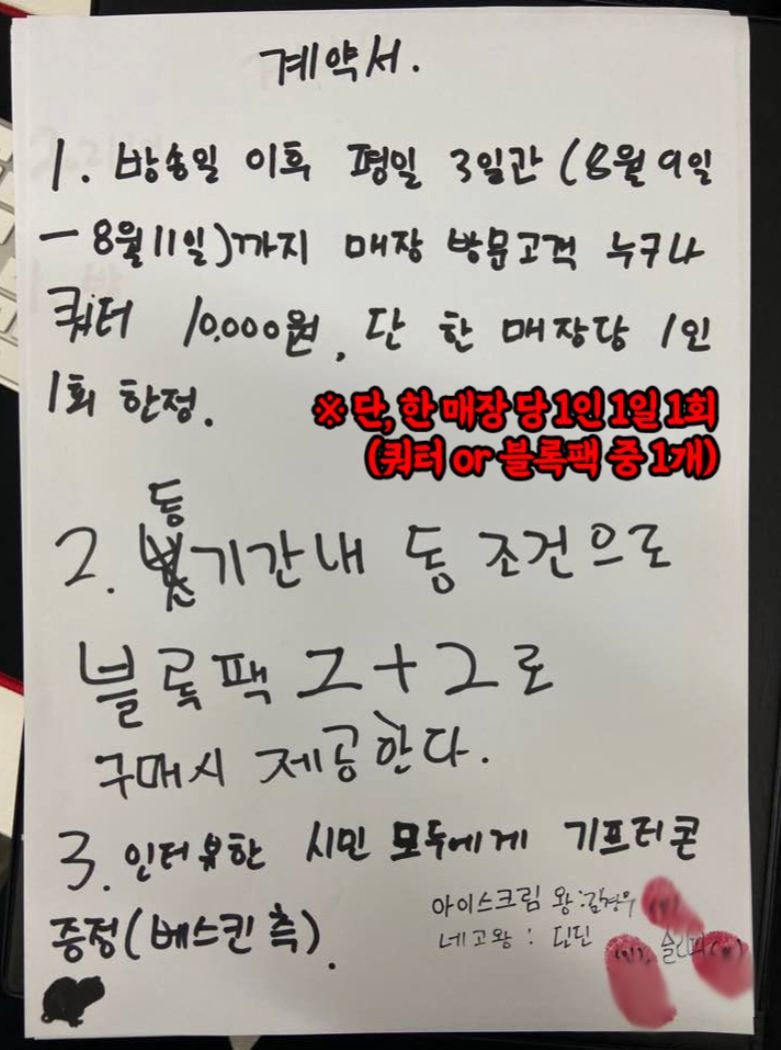 계약서.
1. 방송일 이후 평일 3일간 (8월 9일
- 8월 11일)까지 매장 방문고객 누구나
쿼터 10,000원, 단 한 매장당 1인
1회 한정.
※ 단, 한 매장 당 1인 1일 1회
(쿼터 or 블록팩 중 1개)
2. 동기간내 동 조건으로
블록팩 2+2로
구매시 제공한다.
3. 인터뷰한 시민 모두에게 기프티콘
증정(베스킨 측).
아이스크림 왕: 김경우 (인)
네고왕 : 딘딘 (인), 슬리피 (인)